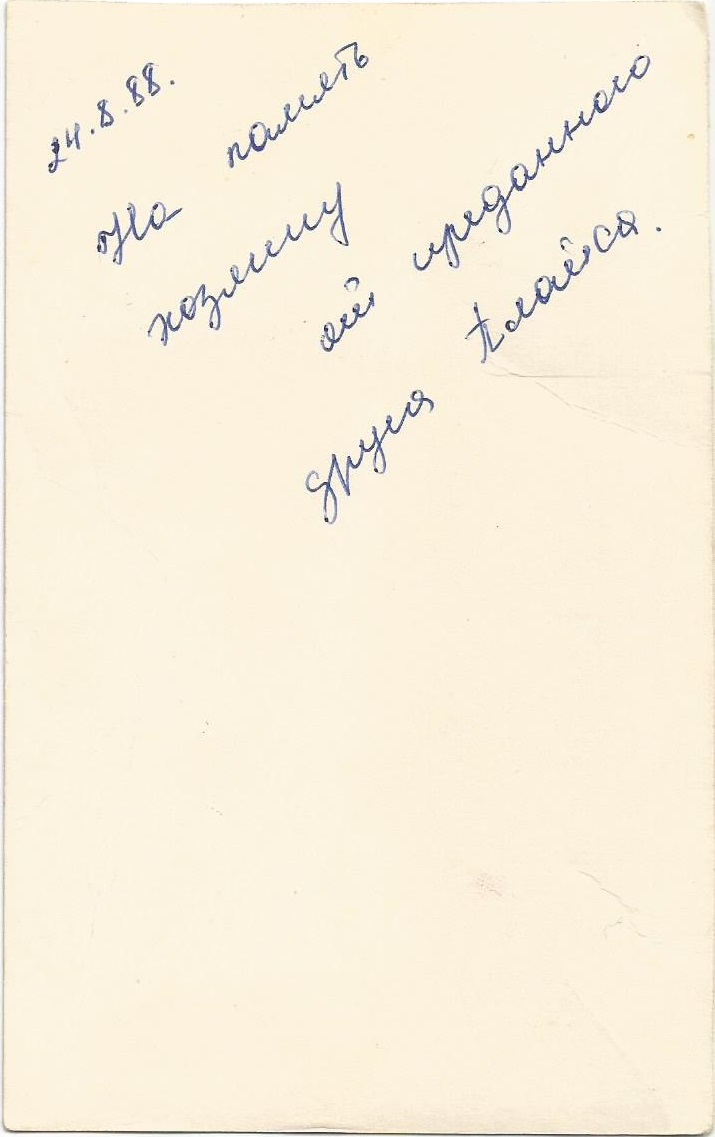 24.8.88.
На память
хозяину
от преданного
друга